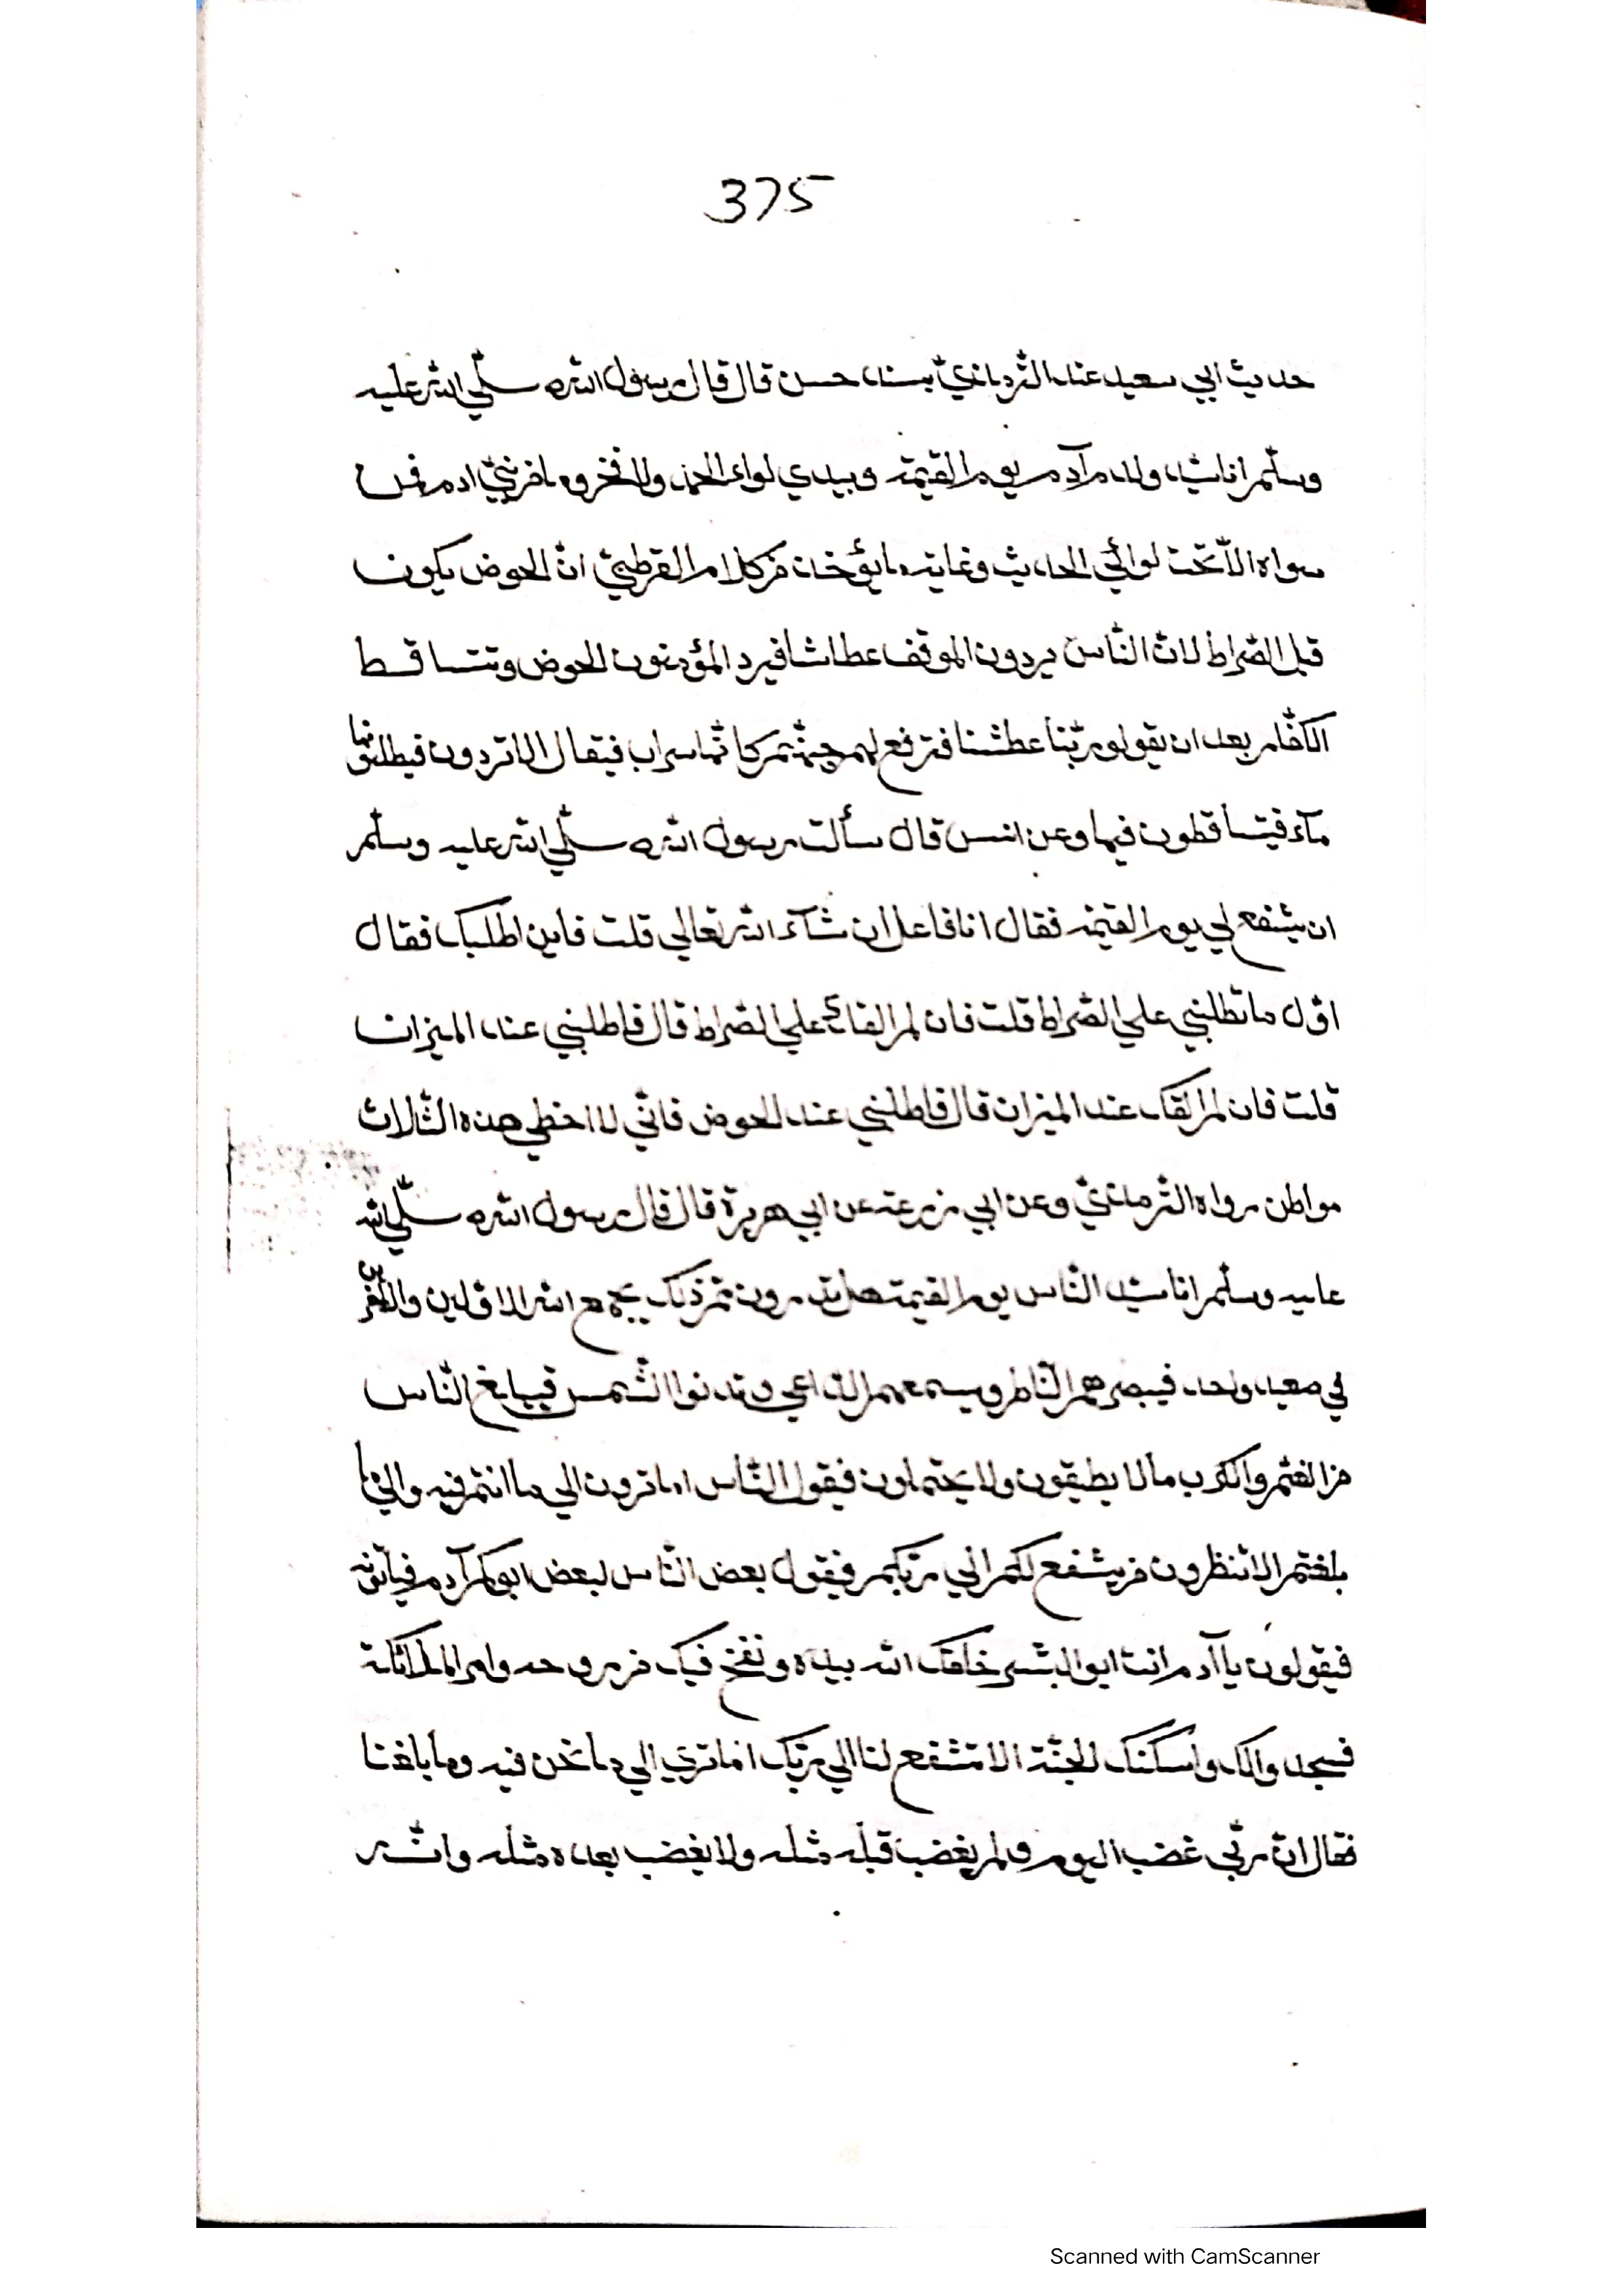 375
حديث ابي سعيد عند الترمذيّ بسند حسن قال قال رسول الله صلّي الله عليه
وسلّم انا سيّد ولد آدم يوم القيمة وبيدي لواء الحمد ولا فخر وما من نبيّ ادم فمن
سواه الاّ تحت لوائي الحديث وغاية ما يؤخذ من كلام القرطبيّ انّ الحوض يكون
قبل الصّراط لانّ النّاس يردون الموقف عطاشا فيرد المؤمنون الحوض وتتساقط
الكفّار بعد ان يقولو ربّنا عطشنا فترفع لهم جهنّم كانّها سراب فيقال الا تردون فيظنّونها
مآء فيتساقطون فيها وعن انس قال سألت رسول الله صلّي الله عليه وسلّم
ان يشفع لي يوم القيمة فقال انا فاعل ان شآء الله تعالي قلت فاين اطلبك فقال
اوّل ما تطلبني علي الصّراط قلت فان لم القاك علي الصّراط قال فاطلبني عند الميزان
قلت فان لم القاك عند الميزان قال فاطلبني عند الحوض فانّي لا اخطي هذه الثّلاث
مواطن رواه التّرمذيّ وعن ابي زرعة عن ابي هريرة قال قال رسول الله صلّي الله
عليه وسلّم انا سيّد النّاس يوم القيمة هل تدرون ممّ ذلك يجمع الله الاوّلين والاخرين
في صعيد واحد فيبصرهم النّاظر ويسمعهم الدّاعي وتدنوا الشّمس فيبلغ النّاس
من الغمّ والكرب ما لا يطيقون ولا يحتملون فيقول النّاس اما ترون الي ما انتم فيه والي ما
بلغتم الا تنظرون من يشفع لكم الي ربّكم فيقول بعض النّاس لبعض ابوكم آدم فيأتونه
فيقولون يا آدم انت ابو البشر خلقك الله بيده ونفخ فيك من روحه وامر الملائكة
فسجد والك واسكنك الجنّة الا تشفع لنا الي ربّك اما تري الي ما نحن فيه وما بلغنا
فقال انّ ربّي غضب اليوم ولم يغضب قبله مثله ولا يغضب بعده مثله وانّه
Scanned with CamScanner